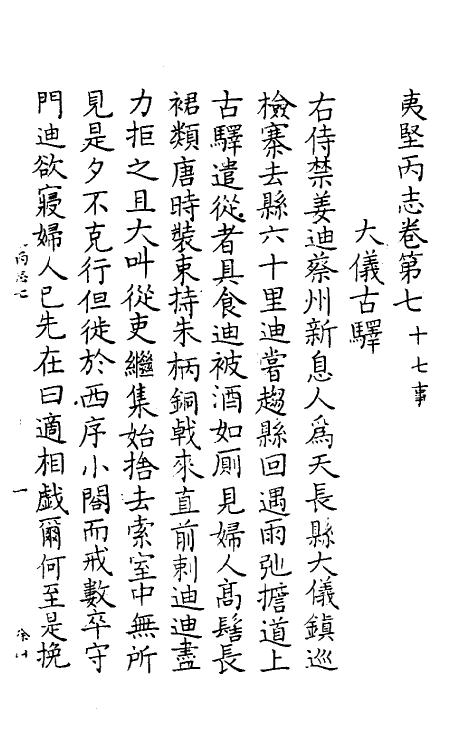 夷堅丙志卷第七 十七事
大儀古驛
右侍禁姜迪蔡州新息人爲天長縣大儀鎮巡
檢寨去縣六十里迪嘗趨縣回遇雨弛擔道上
古驛遣從者具食迪被酒如厠見婦人高髻長
裙類唐時裝束持朱柄銅戟來直前刺迪迪盡
力拒之且大叫從吏繼集始捨去索室中無所
見是夕不克行但徙於西序小閤而戒數卒守
門迪欲寢婦人已先在曰適相戲爾何至是挽
丙志七
一